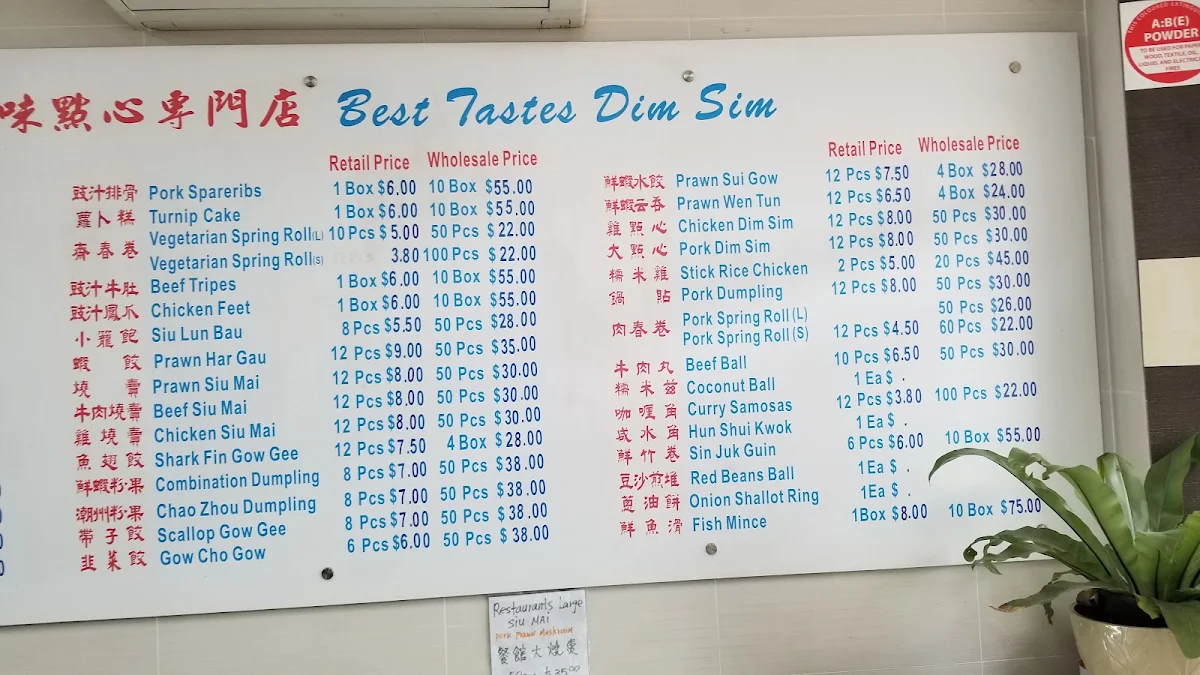 味點心專門店 Best Tastes Dim Sim
Retail Price Wholesale Price
豉汁排骨 Pork Spareribs 1 Box $6.00 10 Box $55.00
蘿卜糕 Turnip Cake 1 Box $6.00 10 Box $55.00
齋春卷 Vegetarian Spring Roll(L) 10 Pcs $5.00 50 Pcs $22.00
Vegetarian Spring Roll(S) 3.80 100 Pcs $22.00
豉汁牛肚 Beef Tripes 1 Box $6.00 10 Box $55.00
豉汁鳳爪 Chicken Feet 1 Box $6.00 10 Box $55.00
小籠飽 Siu Lun Bau 8 Pcs $5.50 50 Pcs $28.00
蝦餃 Prawn Har Gau 12 Pcs $9.00 50 Pcs $35.00
燒賣 Prawn Siu Mai 12 Pcs $8.00 50 Pcs $30.00
牛肉燒賣 Beef Siu Mai 12 Pcs $8.00 50 Pcs $30.00
雞燒賣 Chicken Siu Mai 12 Pcs $8.00 50 Pcs $30.00
魚翅餃 Shark Fin Gow Gee 12 Pcs $7.50 4 Box $28.00
鮮蝦粉果 Combination Dumpling 8 Pcs $7.00 50 Pcs $38.00
潮州粉果 Chao Zhou Dumpling 8 Pcs $7.00 50 Pcs $38.00
帶子餃 Scallop Gow Gee 8 Pcs $7.00 50 Pcs $38.00
韭菜餃 Gow Cho Gow 6 Pcs $6.00 50 Pcs $38.00
Retail Price Wholesale Price
鮮蝦水餃 Prawn Sui Gow 12 Pcs $7.50 4 Box $28.00
鮮蝦云吞 Prawn Wen Tun 12 Pcs $6.50 4 Box $24.00
雞點心 Chicken Dim Sim 12 Pcs $8.00 50 Pcs $30.00
大點心 Pork Dim Sim 12 Pcs $8.00 50 Pcs $30.00
糯米雞 Stick Rice Chicken 2 Pcs $5.00 20 Pcs $45.00
鍋貼 Pork Dumpling 12 Pcs $8.00 50 Pcs $30.00
肉春卷 Pork Spring Roll (L) 50 Pcs $26.00
Pork Spring Roll (S) 12 Pcs $4.50 60 Pcs $22.00
牛肉丸 Beef Ball 10 Pcs $6.50 50 Pcs $30.00
糯米玆 Coconut Ball 1 Ea $ .
咖喱角 Curry Samosas 12 Pcs $3.80 100 Pcs $22.00
咸水角 Hun Shui Kwok 1 Ea $ .
鮮竹卷 Sin Juk Guin 6 Pcs $6.00 10 Box $55.00
豆沙煎堆 Red Beans Ball 1Ea $ .
蔥油餅 Onion Shallot Ring 1Ea $ .
鮮魚滑 Fish Mince 1Box $8.00 10 Box $75.00
A:B(E)
POWDER
TO BE USED FOR PAPER,
WOOD, TEXTILE, OIL,
LIQUID, AND ELECTRICAL
FIRES
Restaurants Large
SIU MAI
Pork Prawn Mushroom
餐館大燒賣